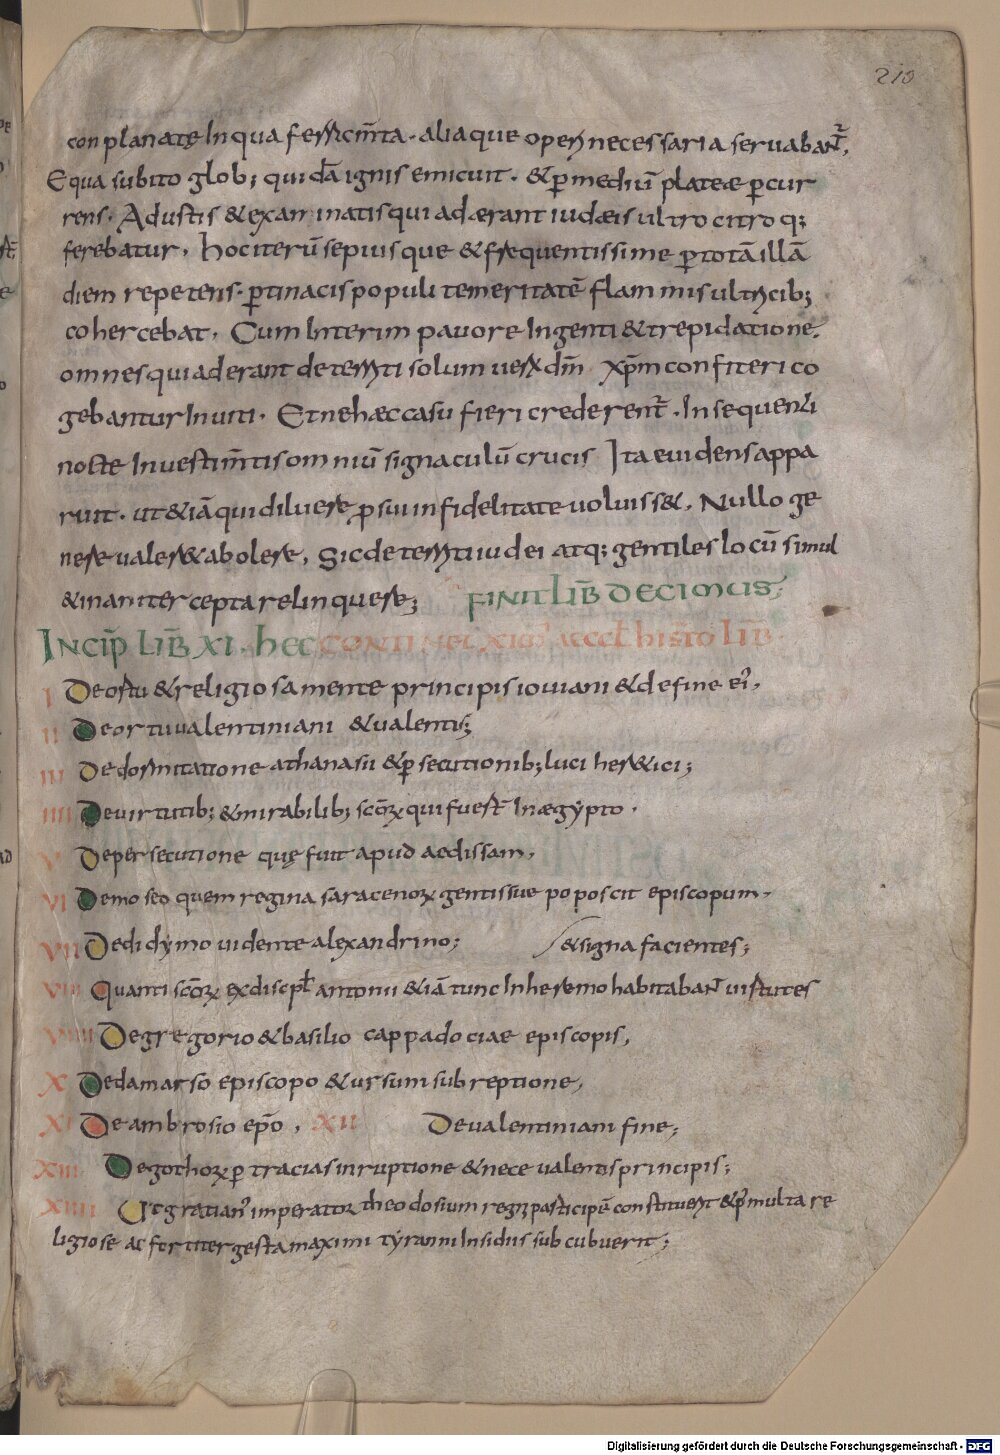 210
conplanatę In qua ferram̄ta. aliaque operi necessaria servaban̄t̄,
E qua subito glob; quidā ignis emicuit. & p̱ mediū plateæ p̱cur
rens. Adustis & exanimatis qui adærant iudæis ultro citroq;
ferebatur. hoc iterū sepiusque & frequentissime p̱ totā illā
diem repetens. p̱tinacis populi temeritatē flammis ultricib;
cohercebat. Cum Interim pavore Ingenti & trepidatione.
omnes qui aderant deterriti solum verū dm̄ xp̄m confiteri co
gebantur Inviti. Et ne hæc casu fieri crederent̄. In sequenti
nocte In vestim̄tis omniū signaculū crucis Ita evidens appa
ruit. ut & iā qui diluere p̱ sui infidelitate voluiss&. Nullo ge
nere valer& abolere, Sic deterriti iudei atq; gentiles locū simul
& inaniter cepta relinquere; FINIT LIB̄ DECIMUS;
INCIP̄ LIB̄ XI. hec CONTINET XI
I De ortu & religiosa mente principis ioviani & de fine ei',
II De ortu valentiniani & valentis;
III De dormitatione athanasii & p̱secutionib; luci her&ici;
IIII De virtutib; & mirabilib; sc̄oꝝ qui fuer̄t In ægypto.
V De persecutione quę fuit apud aedissam,
VI De moseo quem regina saracenoꝝ gentis suę poposcit episcopum,
VII De didymo vidente alexandrino; / & signa facientes;
VIII Quanti sc̄oꝝ ex discip̄l antonii & iā tunc In heremo habitaban̄t virtutes
VIIII De gregorio & basilio cappadociae episcopis,
X De damaso episcopo & ursini subreptione,
XI De ambrosio ep̄o, XII De valentiniani fine;
XIII De gothoꝝ p̱ tracias inruptione & nece valentis principis;
XIIII Ut gratian' imperator theodosium regni participē constituerit & p' multa re
ligiose ac fortiter gesta maximi tyranni Insidiis subcubuerit;
Digitalisierung gefördert durch die Deutsche Forschungsgemeinschaft - DFG